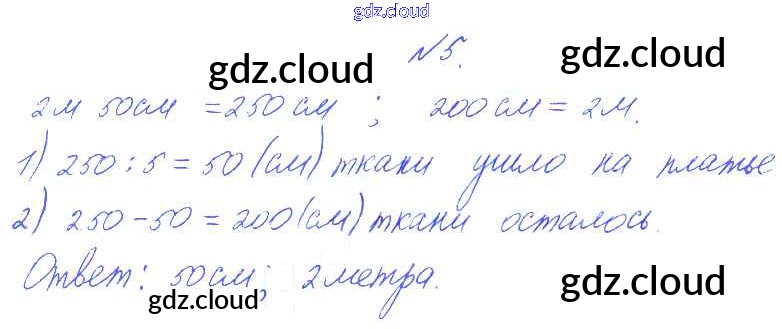 gdz.cloud
№5.
gdz.cloud gdz.cloud
2м 50см = 250 см ; 200 см = 2м.
1) 250 : 5 = 50 (см) ткани ушло на платье
2) 250 - 50 = 200 (см) ткани осталось.
Ответ: 50 см; 2 метра.
gdz.cloud gdz.cloud